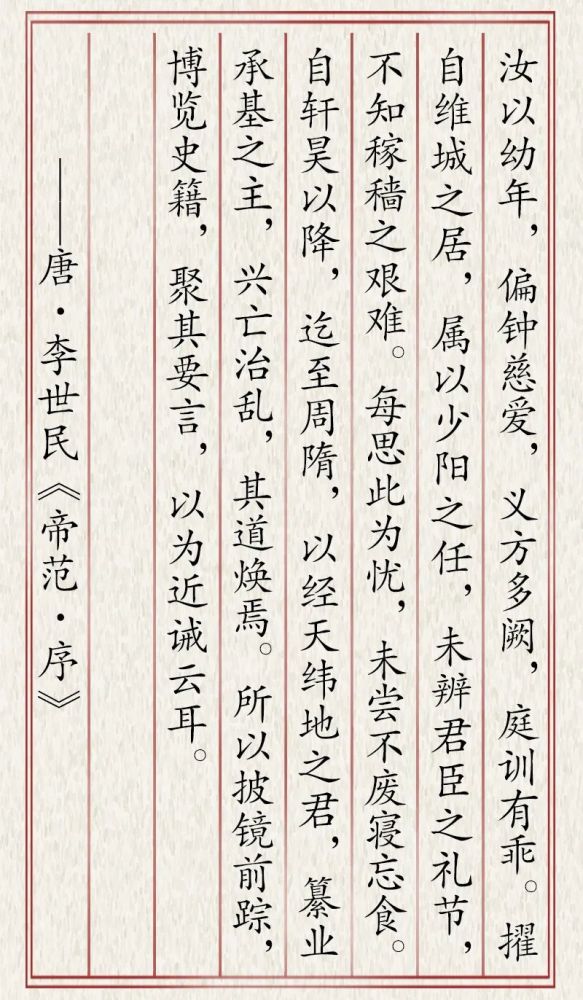 汝以幼年，偏钟慈爱，义方多阙，庭训有乖。擢
自维城之居，属以少阳之任，未辨君臣之礼节，
不知稼穑之艰难。每思此为忧，未尝不废寝忘食。
自轩昊以降，迄至周隋，以经天纬地之君，纂业
承基之主，兴亡治乱，其道焕焉。所以披镜前踪，
博览史籍，聚其要言，以为近诫云耳。
——唐·李世民《帝范·序》